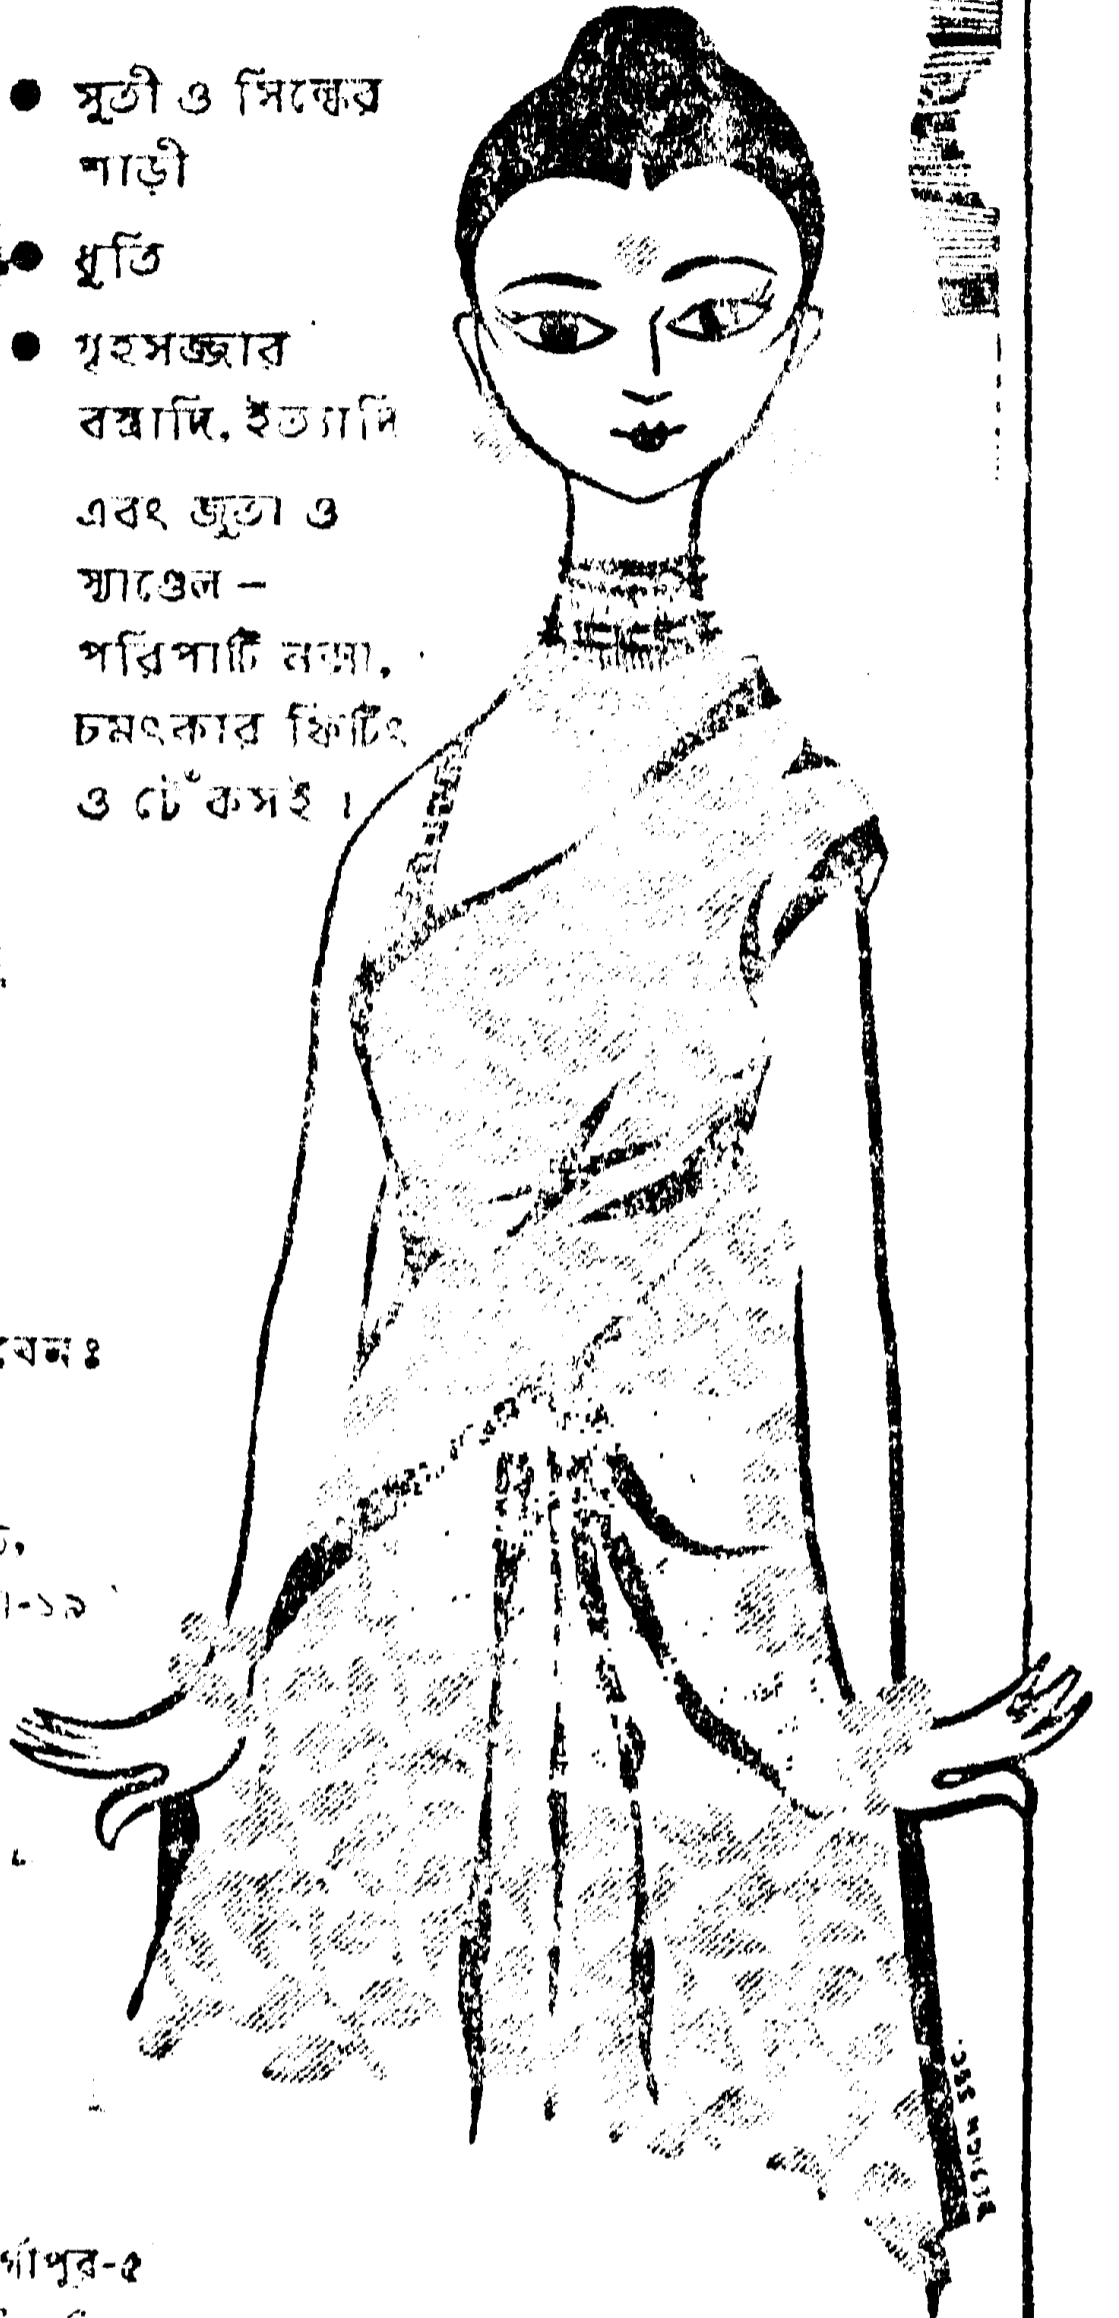 ● সুতী ও সিল্কের
শাড়ী
● ধুতি
● গৃহসজ্জার
বস্ত্রাদি, ইত্যাদি
এবং জুতা ও
স্যাণ্ডেল –
পরিপাটি নক্সা,
চমৎকার ফিটিং
ও টেঁকসই।
বেনঃ
-১৯
র্গাপুর-৫